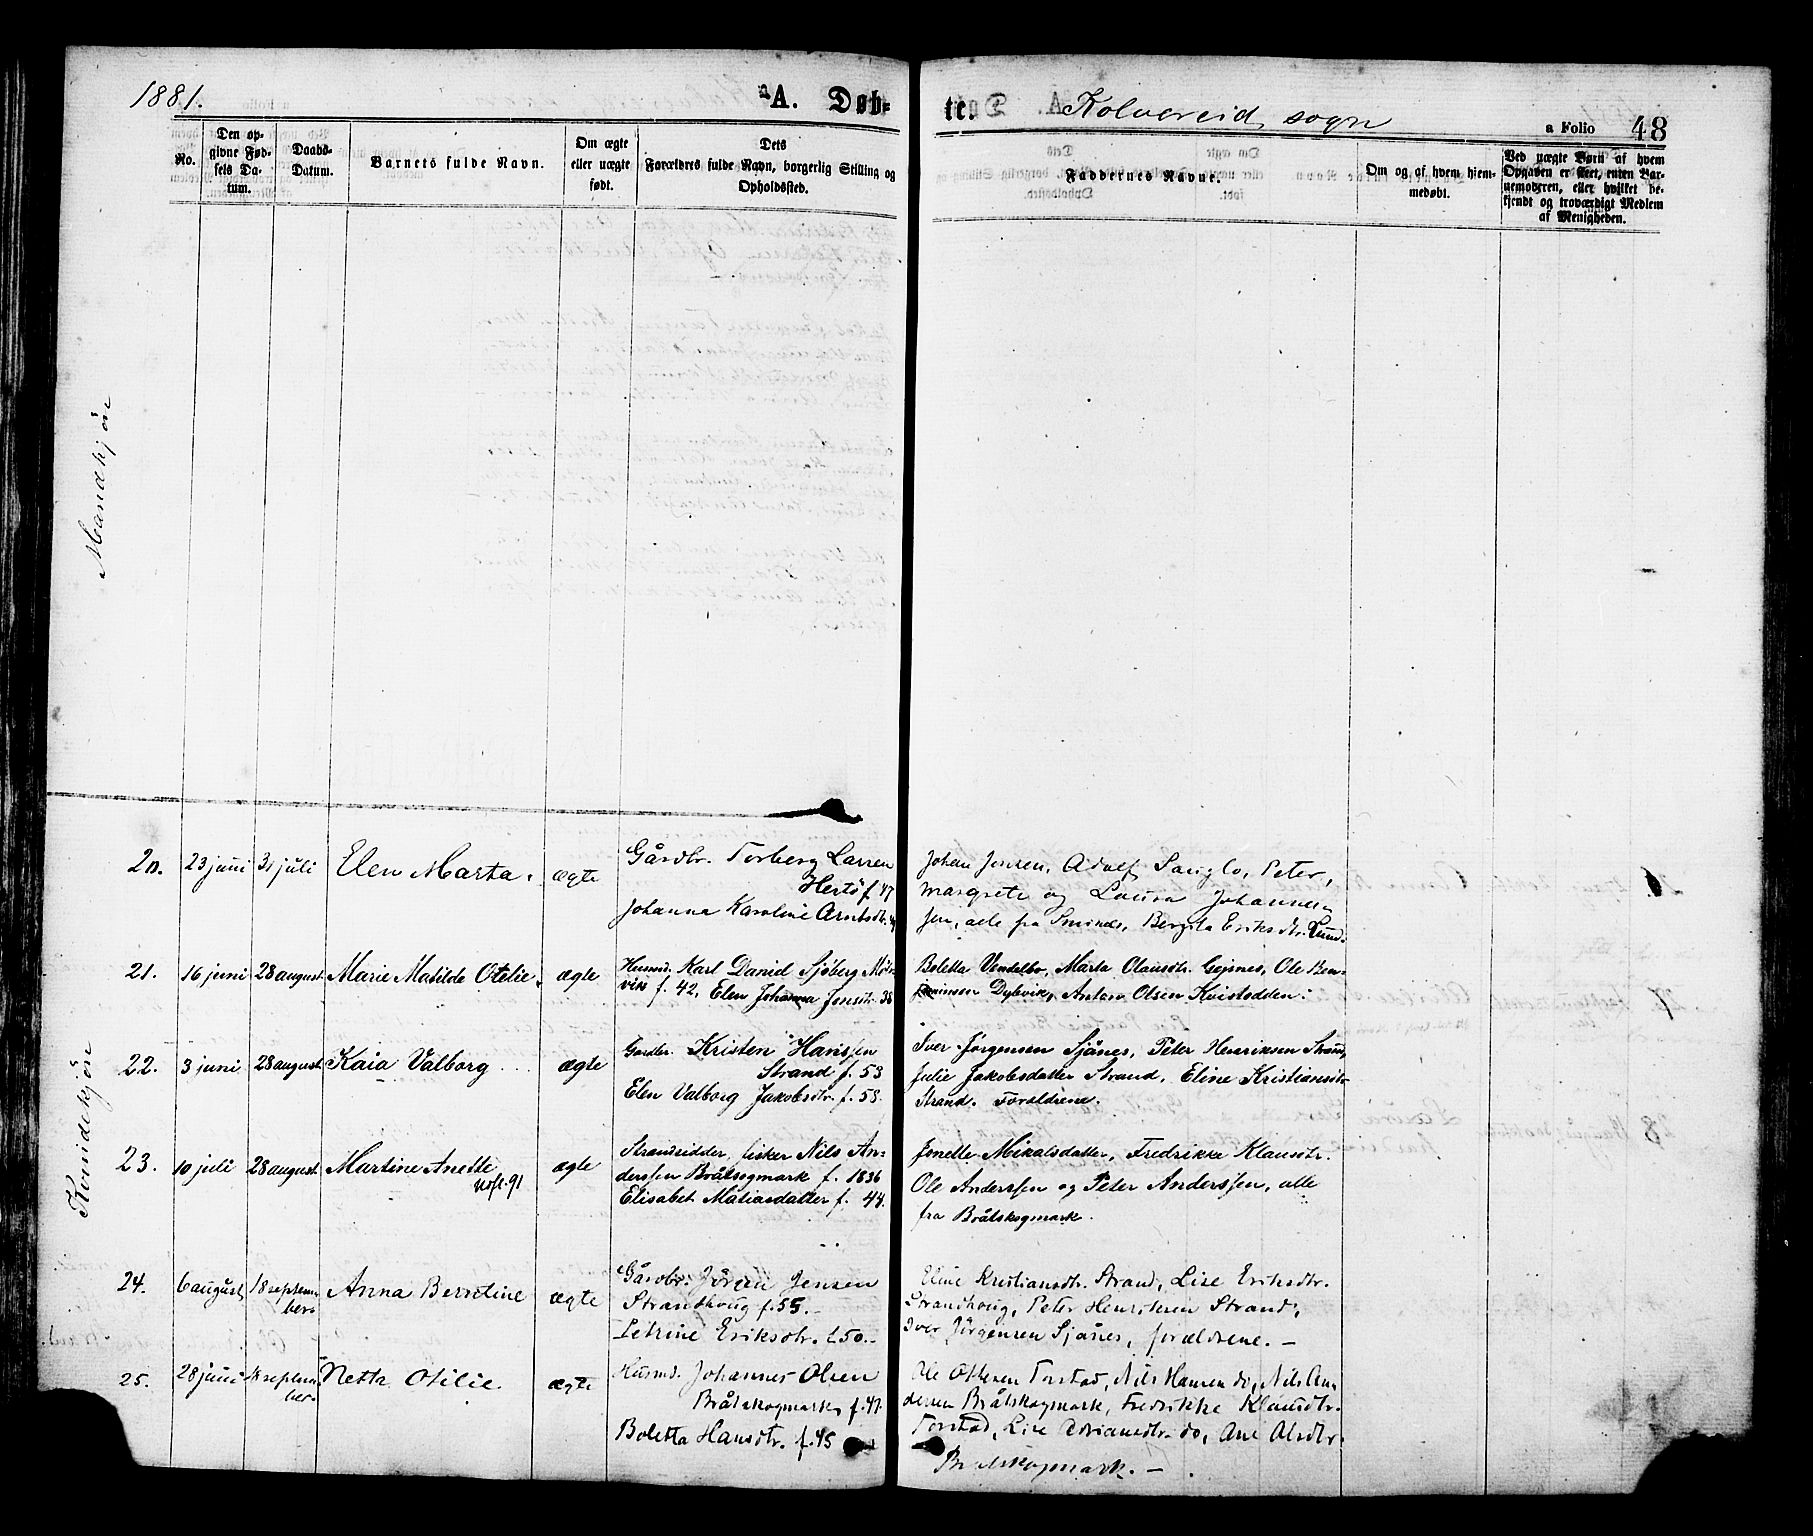 1881.
A. Døb-
te.
Kolvereid sogn
a Folio 48
No.
Den op-
givne Fød-
sels Da-
tum.
Daabs-
Datum.
Barnets fulde Navn.
Om ægte
eller uægte
født.
Dets
Forældres fulde Navn, borgerlig Stilling og
Opholdssted.
Faddernes Navne.
Om og af hvem hjem-
medøbt.
Ved uægte Børn af hvem
Opgaven er skeet, enten Bar-
nemoderen, eller hvilket be-
kjendt og troværdigt Medlem
af Menigheden.
Mandkjøn
Kvindekjøn
20. 23 juni 31 juli Elen Marta. ægte
Gårdbr. Torberg Larsen
Hertø f. 47
Johanna Karoline Arntsdtr.
Johan Jensen, Adolf, Peter,
Margrete og Laura Johannes-
sen, alle fra Smines, Bergita Eriksdtr. Lund.
21. 16 juni 28 august Marie Matilde Otelie. ægte
Husmd. Karl Daniel Sjøberg Mør-
vik f. 42, Elen Johanna Jonsdtr. 38
Boletta Vendelbo, Marta Olausdtr. Gejsnes, Ole Ben-
jaminsen Dybvik, Anton Olsen Kvistodden.
22. 3 juni 28 august Kaia Valborg ægte
Gardbr. Kristen Hanssen
Strand f. 53
Elen Valborg Jakobsdtr. f. 58.
Iver Jørgensen Sjånes, Peter Henriksen Strand,
Julie Jakobsdatter Strand, Eline Kristiansdtr
Strand. Foraldrene.
23. 10 juli 28 august Martine Anette ægte
Strandsidder, fisker Nils An-
derssen Bråtsogmark f. 1836
Elisabet Matiasdatter f. 44.
Jonette Mikalsdatter, Fredrikke Klausdtr.
Ole Anderssen og Peter Anderssen, alle
fra Bråtskogmark.
24. 6 august 18 septem-
ber. Anna Berntine ægte
Gårdbr. Jørgen Jensen
Strandhoug f. 55.
Petrine Eriksdtr. f. 50.
Eline Kristiansdtr. Strand, Lise Eriksdtr.
Strandhoug, Peter Henriksen Strand,
Iver Jørgensen Sjånes, forældrene. —
25. 28 juni 18 septem-
ber. Netta Otilie. ægte
Husmd. Johannes Olsen
Bråtskogmark, f. 47.
Boletta Hansdtr. f. 45
Ole Ottesen Torstad, Nils Hansen do, Nils An-
dersen Bråtskogmark, Fredrikke Klausdtr.
Torstad, Lise Adriansdtr. do, Ane Olsdtr.
Bråtskogmark. —